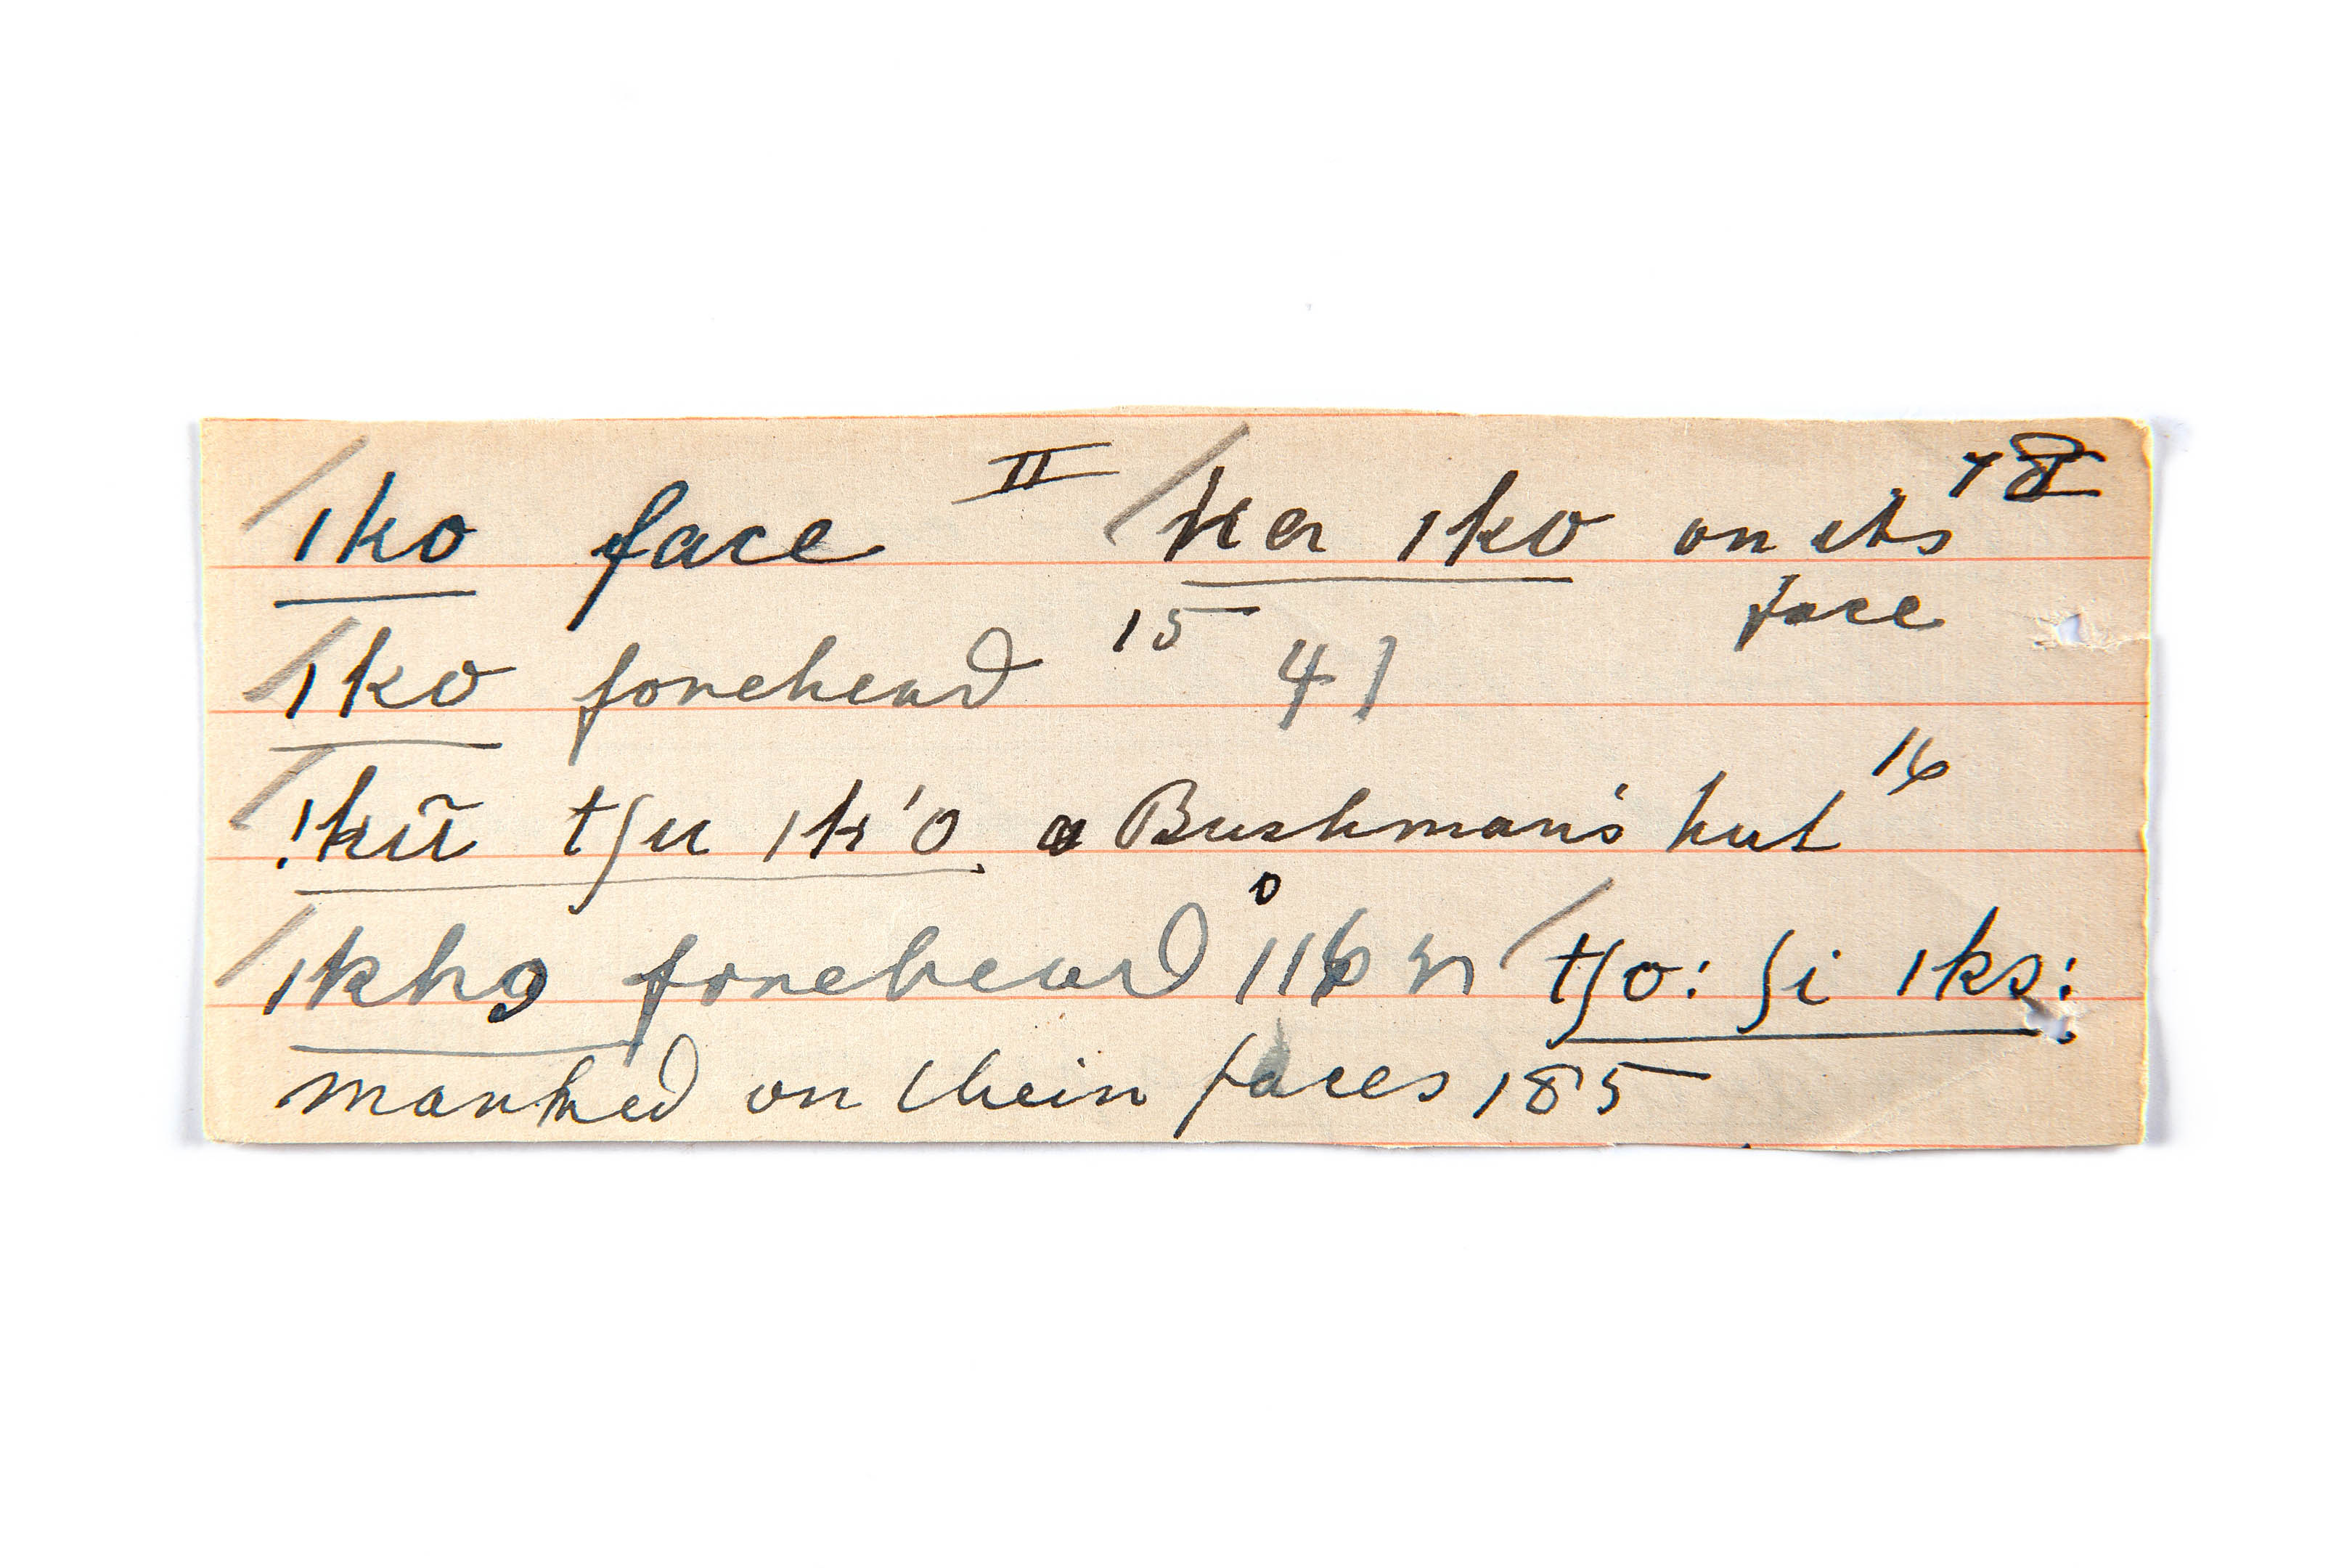 ǀko face II ka ǀko on its 78
face
ǀko forehead 15 41
!kũ tʃu ǀk'o a Bushman's hut 16
ǀkho forehead 116 tʃo: ʃi ǀko:
marked on their faces 185